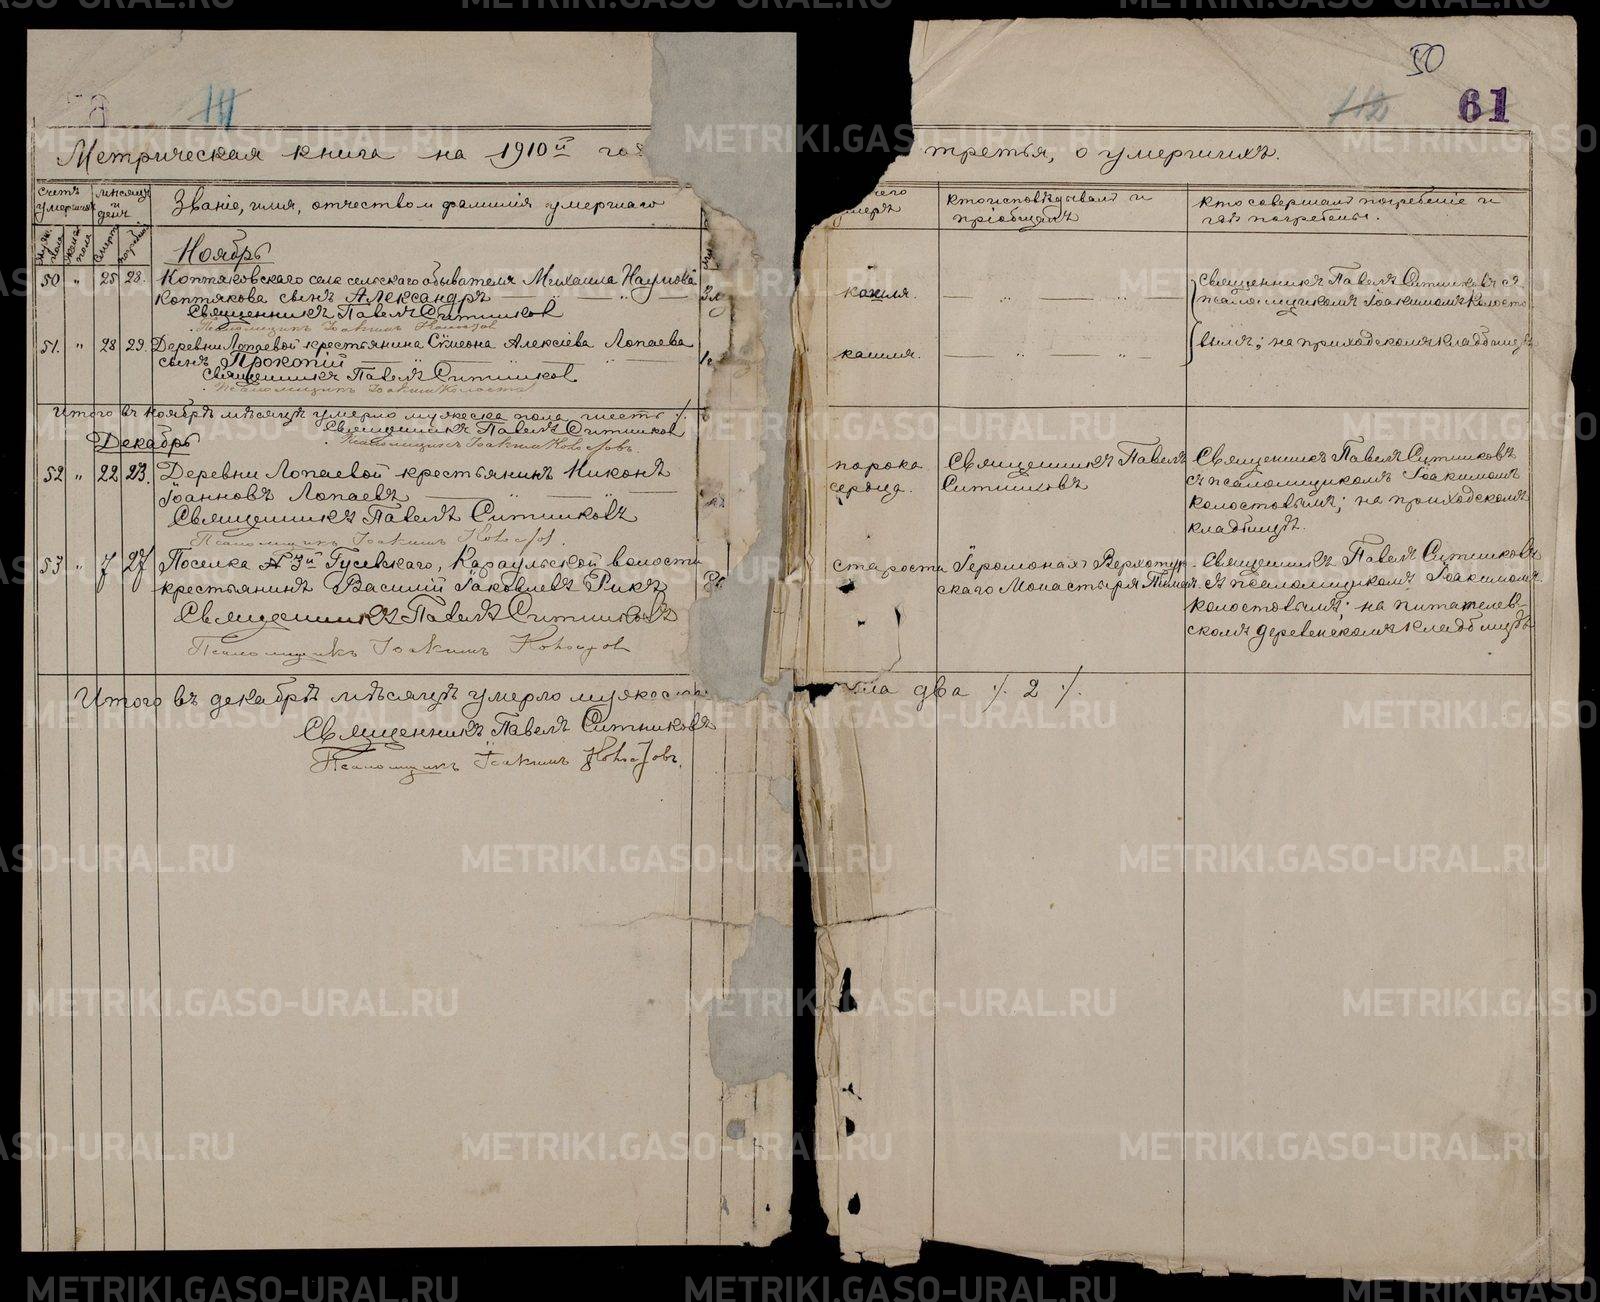 50
61
111
112
Метрическая книга на 1910й го
третья, о умерших.
счетъ умершихъ
мѣсяцъ и день
Званіе, имя, отчество и фамилія умершаго
чего
умеръ
кто исповѣдывалъ и
пріобщалъ
кто совершалъ погребеніе и
гдѣ погребены.
Ноябрь
50 " 25 28. Коптяковскаго сельскаго обывателя Михаила Наумова
Коптякова сынъ Александръ
Священникъ Павелъ Ситниковъ
Псаломщикъ Іоакимъ
кашля.
Священникъ Павелъ Ситниковъ съ
псаломщикомъ Іоакимомъ Колосто
51. " 28 29. Деревни Лопаевой крестьянина Сѵмеона Алексіева Лопаева
сынъ Прокопій
Священникъ Павелъ Ситниковъ
Псаломщикъ Іоакимъ
кашля.
вымъ; на приходскомъ кладбищѣ
Итого въ ноябрѣ мѣсяцѣ умерло мужеска пола шесть
Священникъ Павелъ Ситниковъ
Псаломщикъ Іоакимъ
Декабрь
52 " 22 23. Деревни Лопаевой крестьянинъ Никонъ
Іоанновъ Лопаевъ
Священникъ Павелъ Ситниковъ
Псаломщикъ Іоакимъ
порока
сердца.
Священникъ Павелъ
Ситниковъ
Священникъ Павелъ Ситниковъ
съ псаломщикомъ Іоакимомъ
Колостовымъ; на приходскомъ
кладбищѣ.
53 " 7 27 Поселка № 3й Гусевскаго, Караульской волости
крестьянинъ Василій Іаковлевъ Рикъ
Священникъ Павелъ Ситниковъ
Псаломщикъ Іоакимъ
старости
Іеромонахъ Верхотур
скаго Монастыря
Священникъ Павелъ Ситниковъ
съ псаломщикомъ Іоакимомъ
Колостовымъ; на питателев-
скомъ деревенскомъ кладбищѣ
Итого въ декабрѣ мѣсяцѣ умерло мужеска
ла два ./. 2 ./.
Священникъ Павелъ Ситниковъ
Псаломщикъ Іоакимъ
METRIKI.GASO-URAL.RU